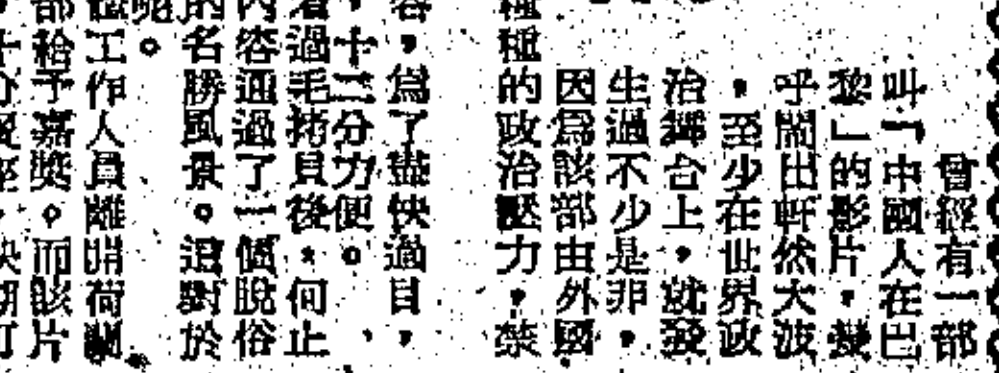 曾經有一部
叫「中國人在巴
黎」的影片,幾
乎鬧出軒然大波
,至少在世界政
治舞台上,就發
生過不少是非,
因爲該部由外國
種的政治壓力,禁
,爲了盡快過目,
十二分力便。
過毛拷貝後,何止
內容通過了一個脫俗
的名勝風景。這對於
工作人員離開荷蘭
部給予嘉獎。而該片